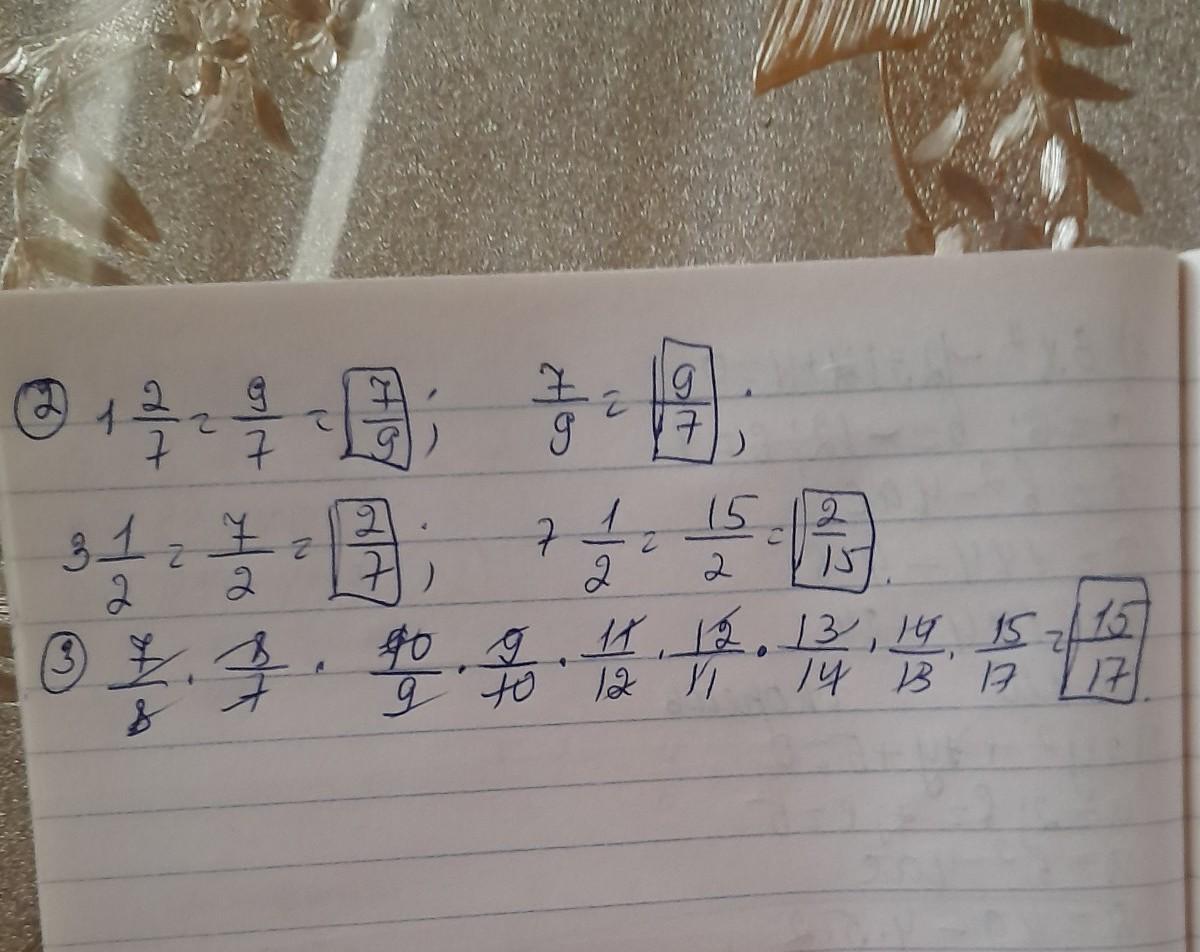 ② 1 2/7 = 9/7 = 7/9; 7/9 = 9/7;
3 1/2 = 7/2 = 2/7; 7 1/2 = 15/2 = 2/15.
③ 7/8 · 8/7 · 10/9 · 9/10 · 11/12 · 12/11 · 13/14 · 14/13 · 15/17 = 15/17.